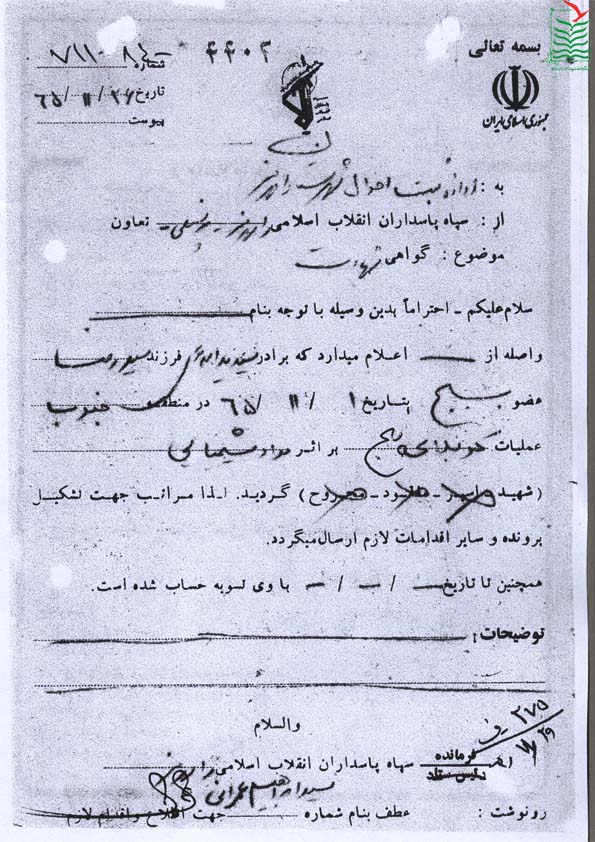 بسمه تعالی
جمهوری اسلامی ایران
۴۴۰۲
شماره ۷۱۱۰۸
تاریخ ۶۵/۱۱/۲۶
پیوست
به : اداره ثبت احوال شهرستان
از : سپاه پاسداران انقلاب اسلامی تعاون
موضوع : گواهی شهادت
سلام علیکم - احتراماً بدین وسیله با توجه بنام
واصله از — اعلام میدارد که برادر فرزند سید رضا
عضو بسیج بتاریخ ۱ / ۱۱ / ۶۵ در منطقه جنوب
عملیات کربلای پنج بر اثر مواد شیمیائی
(شهید - اسیر - مفقود - مجروح) گردید. لذا مراتب جهت تشکیل
پرونده و سایر اقدامات لازم ارسال میگردد.
همچنین تا تاریخ — / — / — با وی تسویه حساب شده است.
توضیحات :
والسلام
فرمانده سپاه پاسداران انقلاب اسلامی
رئیس ستاد
سید ابراهیم
۲۷۵
رونوشت : عطف بنام شماره جهت اطلاع و اقدام لازم